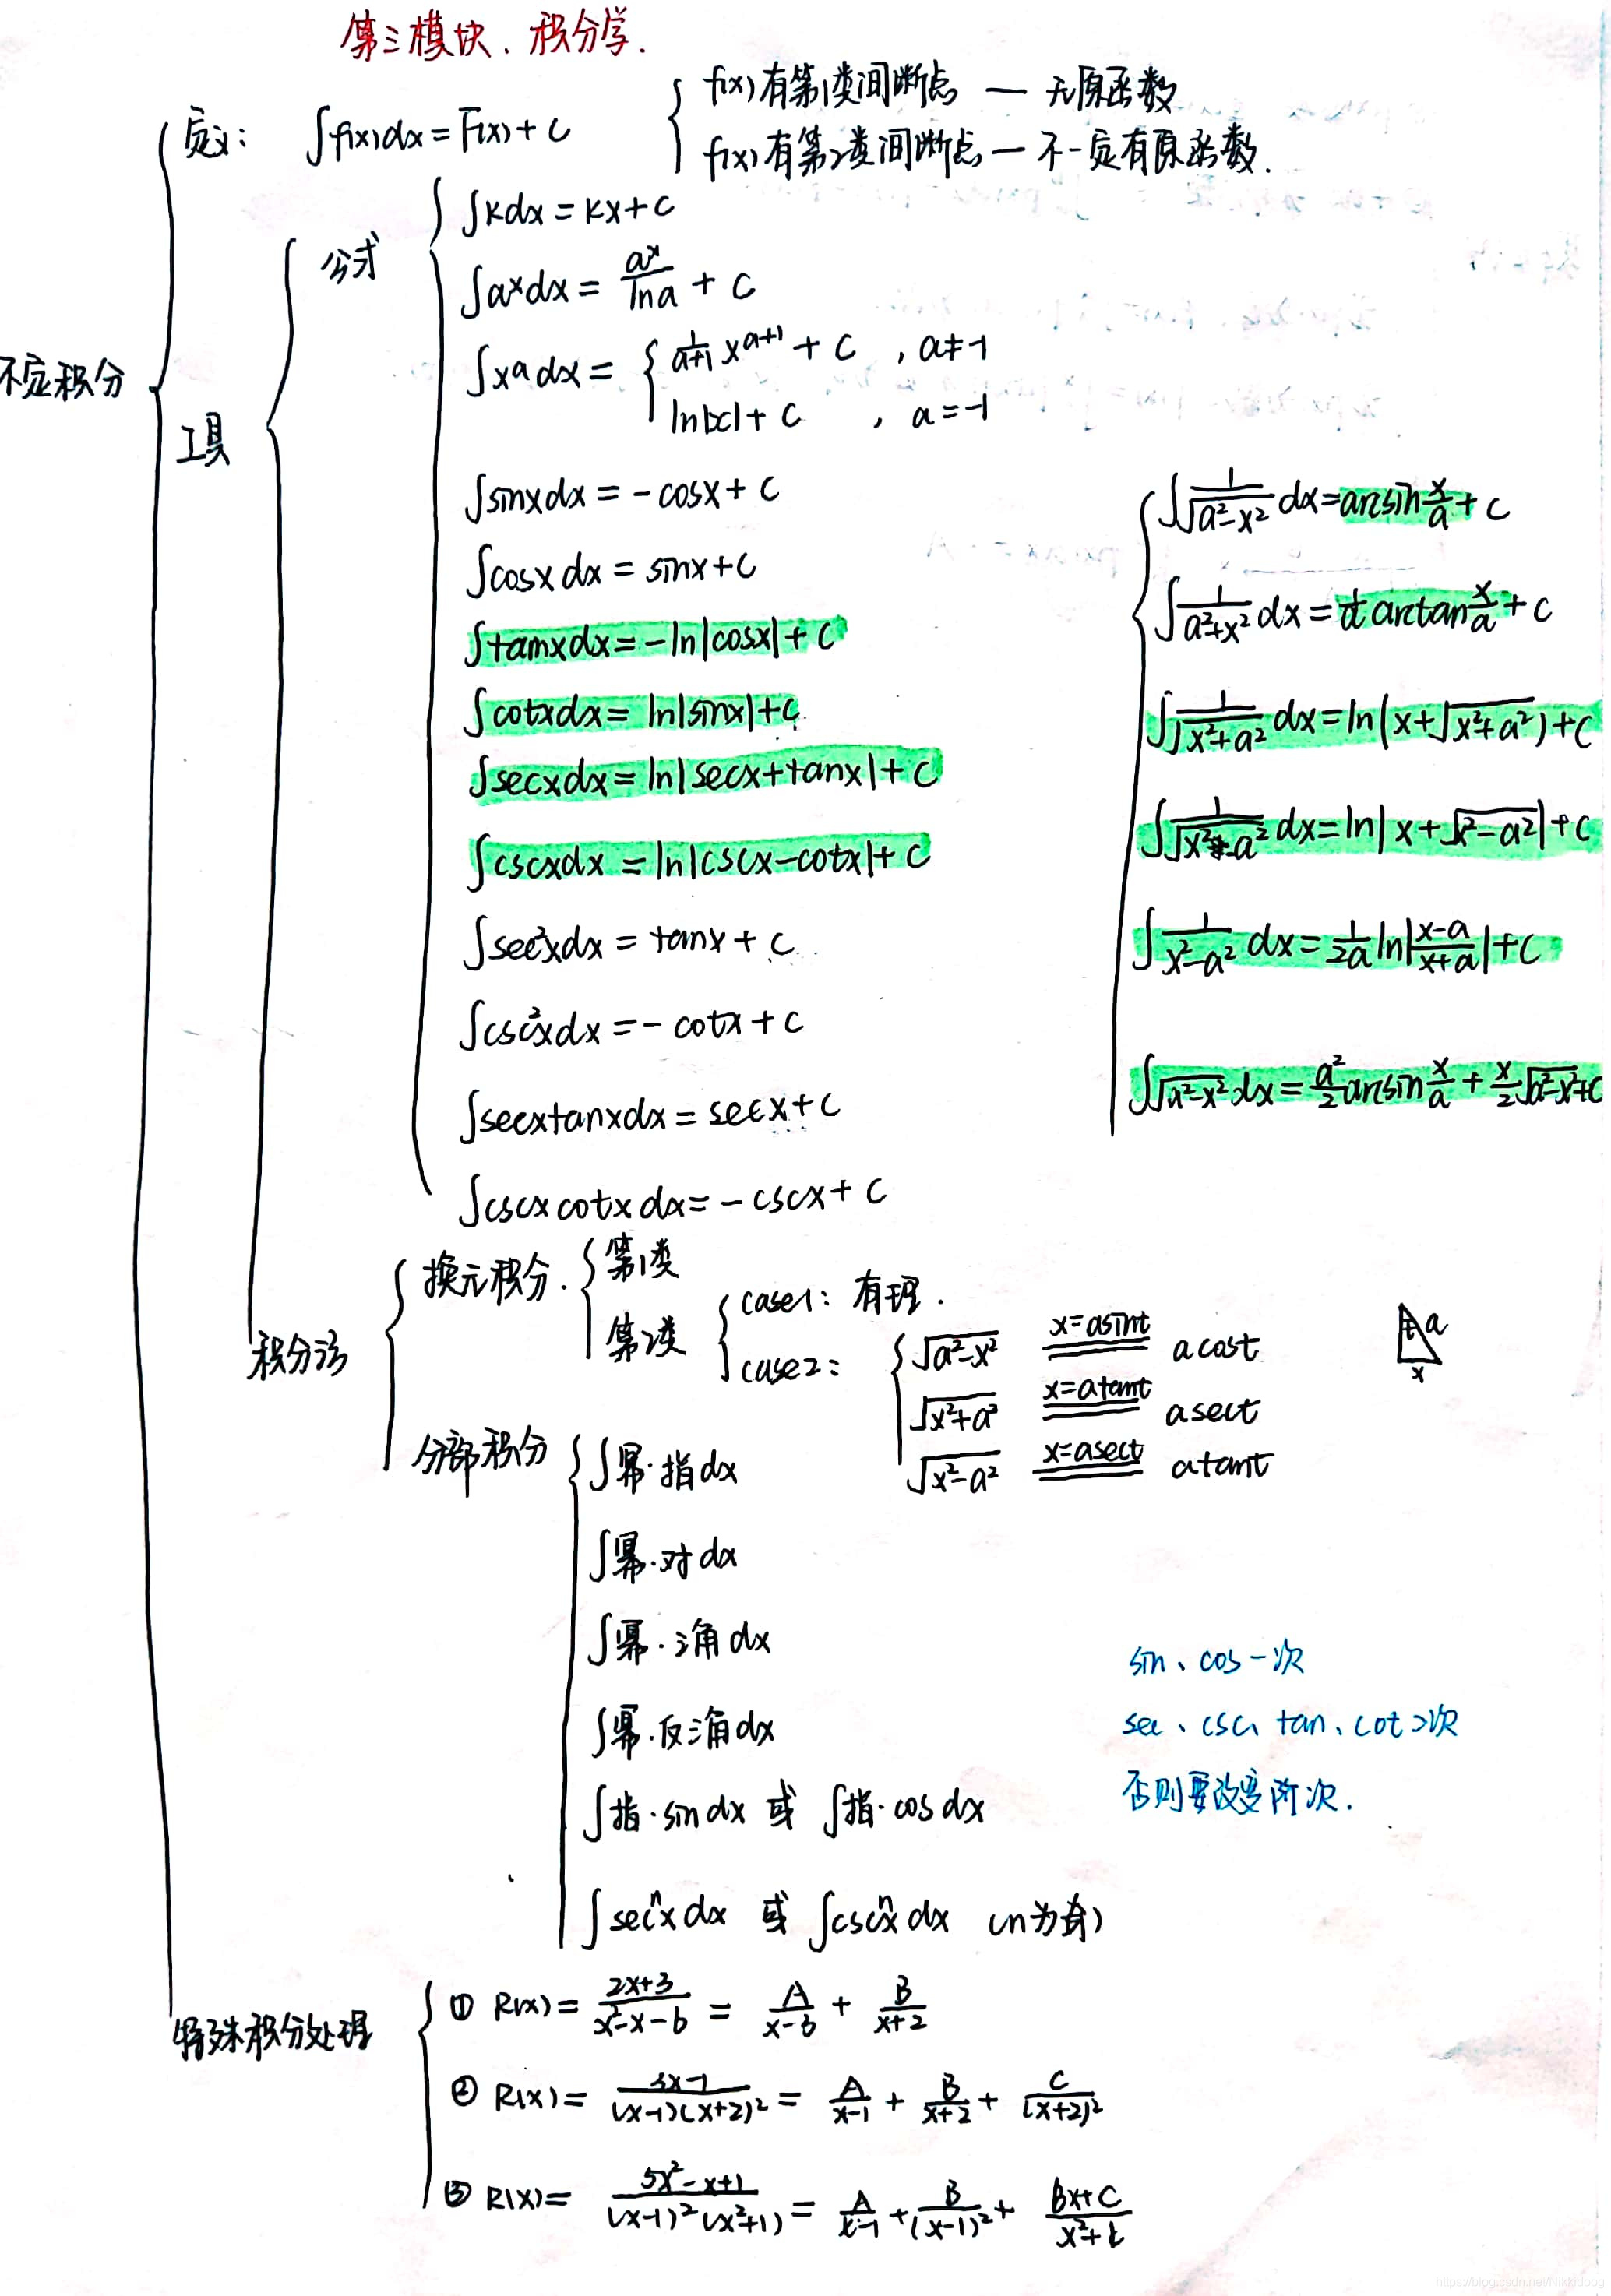 第三模块、积分学.
定义: ∫f(x)dx = F(x) + C
f(x)有第1类间断点 — 无原函数
f(x)有第2类间断点 — 不一定有原函数.
不定积分
工具
公式
∫kdx = kx + C
∫a^x dx = a^x/lna + C
∫x^a dx = { 1/(a+1) x^(a+1) + C , a≠-1
ln|x| + C , a=-1
∫sinxdx = -cosx + C
∫cosxdx = sinx + C
∫tanxdx = -ln|cosx| + C
∫cotxdx = ln|sinx| + C
∫secxdx = ln|secx+tanx| + C
∫cscxdx = ln|cscx-cotx| + C
∫sec²xdx = tanx + C
∫csc²xdx = -cotx + C
∫secxtanxdx = secx + C
∫cscxcotxdx = -cscx + C
∫1/√(a²-x²) dx = arcsin x/a + C
∫1/(a²+x²) dx = 1/a arctan x/a + C
∫1/√(x²+a²) dx = ln(x+√(x²+a²)) + C
∫1/√(x²-a²) dx = ln|x+√(x²-a²)| + C
∫1/(x²-a²) dx = 1/(2a) ln|(x-a)/(x+a)| + C
∫√(a²-x²) dx = a²/2 arcsin x/a + x/2 √(a²-x²) + C
积分法
换元积分.
第1类
第2类
case1: 有理.
case2:
√(a²-x²) x=asint acost
√(x²+a²) x=atant asect
√(x²-a²) x=asect atant
t a
x
分部积分
∫幂·指dx
∫幂·对dx
∫幂·三角dx
∫幂·反三角dx
∫指·sindx 或 ∫指·cosdx
∫secⁿxdx 或 ∫cscⁿxdx (n为奇)
sin、cos一次
sec、csc、tan、cot 2次
否则要改变阶次.
特殊积分处理
① R(x) = (2x+3)/(x²-x-6) = A/(x-3) + B/(x+2)
② R(x) = (3x-1)/((x-1)(x+2)²) = A/(x-1) + B/(x+2) + C/(x+2)²
③ R(x) = (5x²-x+1)/((x-1)²(x²+1)) = A/(x-1) + B/(x-1)² + (Bx+C)/(x²+1)